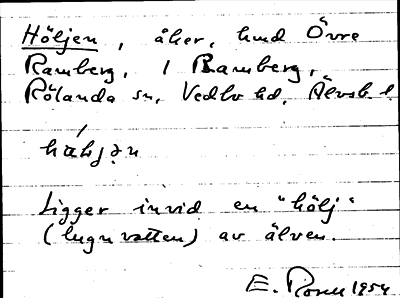 Höljen, åker, hmd Övre
Ramberg, 1 Ramberg,
Rölanda sn, Vedbo hd, Älvsb. l.
Ligger invid en "hölj"
(lugnvatten) av älven.
E. 1954